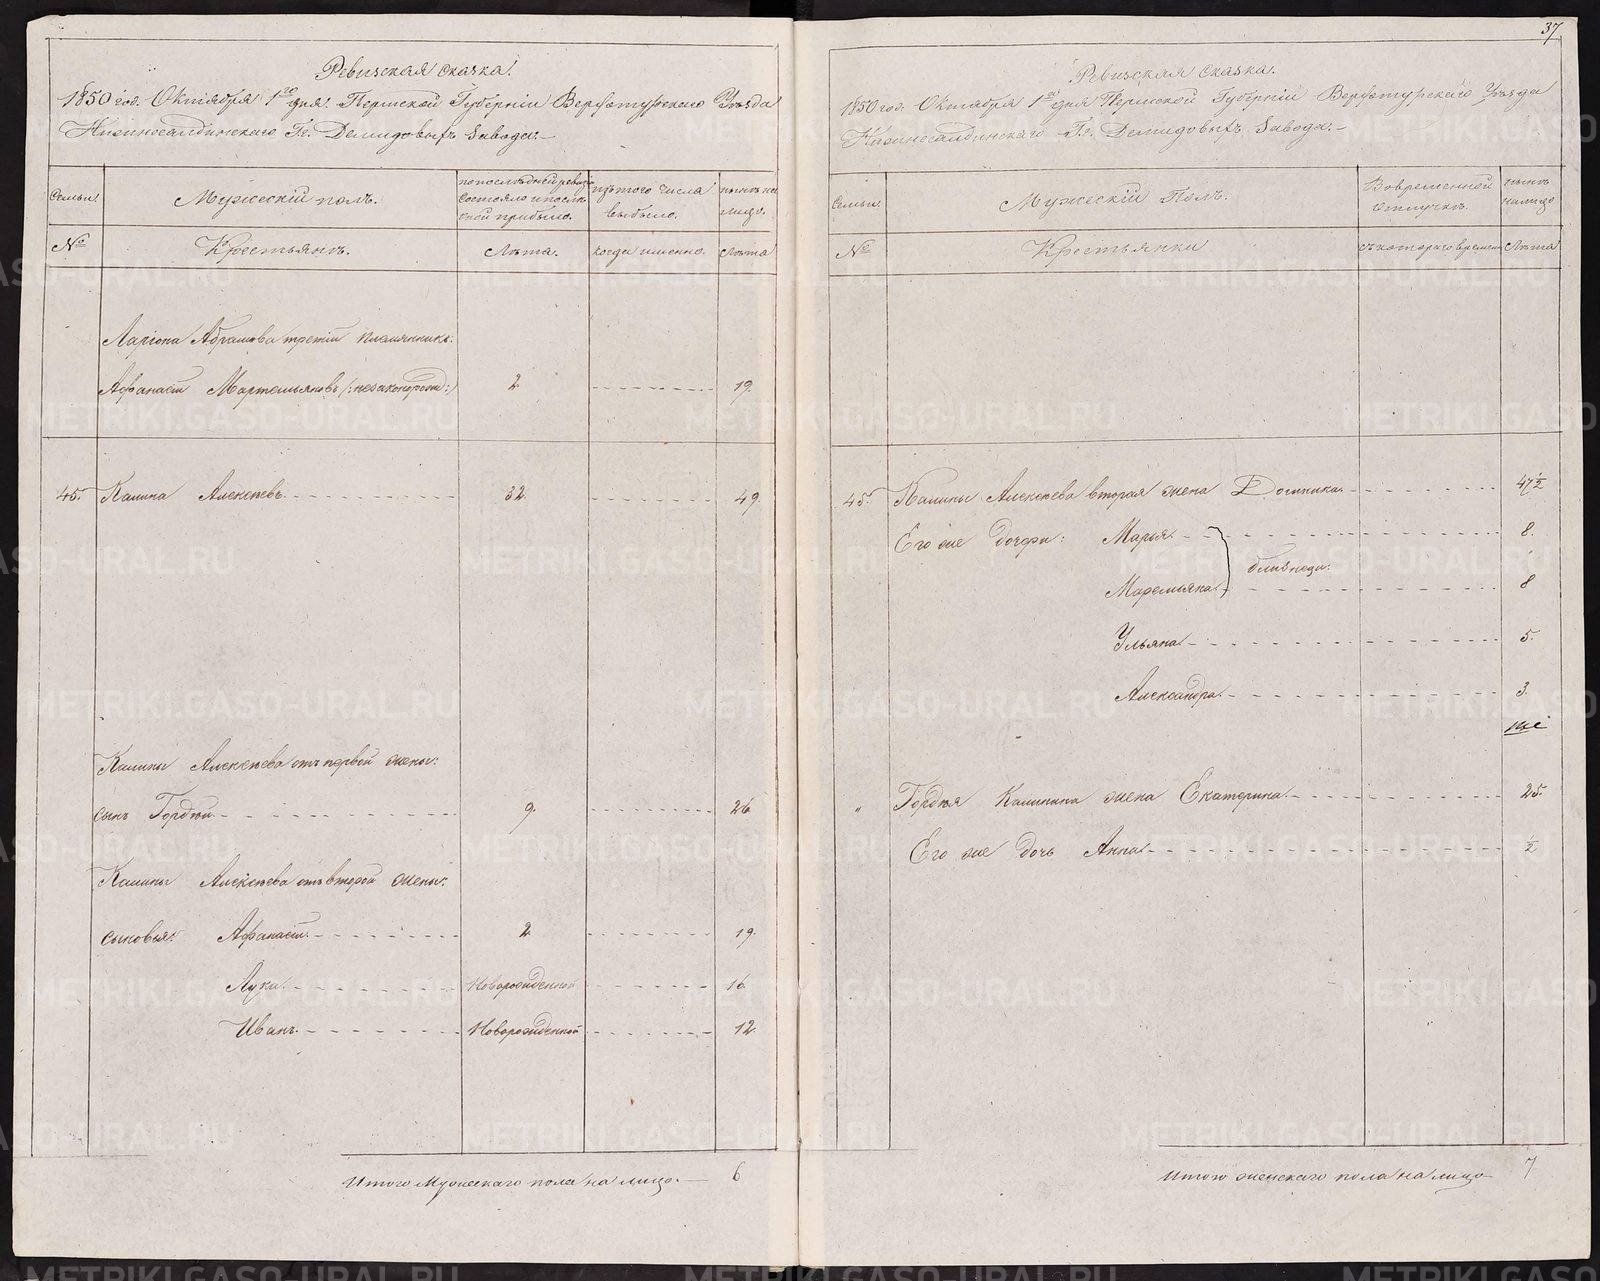 37
Ревизская сказка.
1850 год. Октября 1го дня. Пермской Губернiи Верхотурскаго Уѣзда
Нижнесалдинскаго Гг. Демидовыхъ Завода.
Семьи. Мужескiй полъ. по послѣдней ревизiи состояло и послѣ оной прибыло. изъ того числа выбыло. нынѣ на лицо.
№ Крестьянъ. Лѣта. когда именно. Лѣта
Ларiона Абрамова третiй племянникъ:
Афанасiй Мартемьяновъ (:незаконорожд:) 2 19.
45. Калина Алексѣевъ. 32. 49.
Калины Алексѣева отъ первой жены:
сынъ Гордѣй. 9. 26.
Калины Алексѣева отъ второй жены:
сыновья: Афанасiй. 2 19.
Лука. Новорожденной 16
Иванъ. Новорожденной 12.
Итого Мужескаго пола на лицо. 6
Ревизская сказка.
1850 год. Октября 1го дня Пермской Губернiи Верхотурскаго Уѣзда
Нижнесалдинскаго Гг. Демидовыхъ Завода.
Семьи. Мужескiй Полъ. Во временной отлучкѣ. нынѣ на лицо
№ Крестьянки съ котораго времени Лѣта
45. Калины Алексѣева вторая жена Домника. 47½
Его же дочери: Марья. 8.
близнецы:
Маремьяна. 8
Ульяна. 5.
Александра. 3.
" Гордѣя Калинина жена Екатерина. 25.
Его же дочь Анна. ½
Итого женскаго пола на лицо 7
METRIKI.GASO-URAL.RU